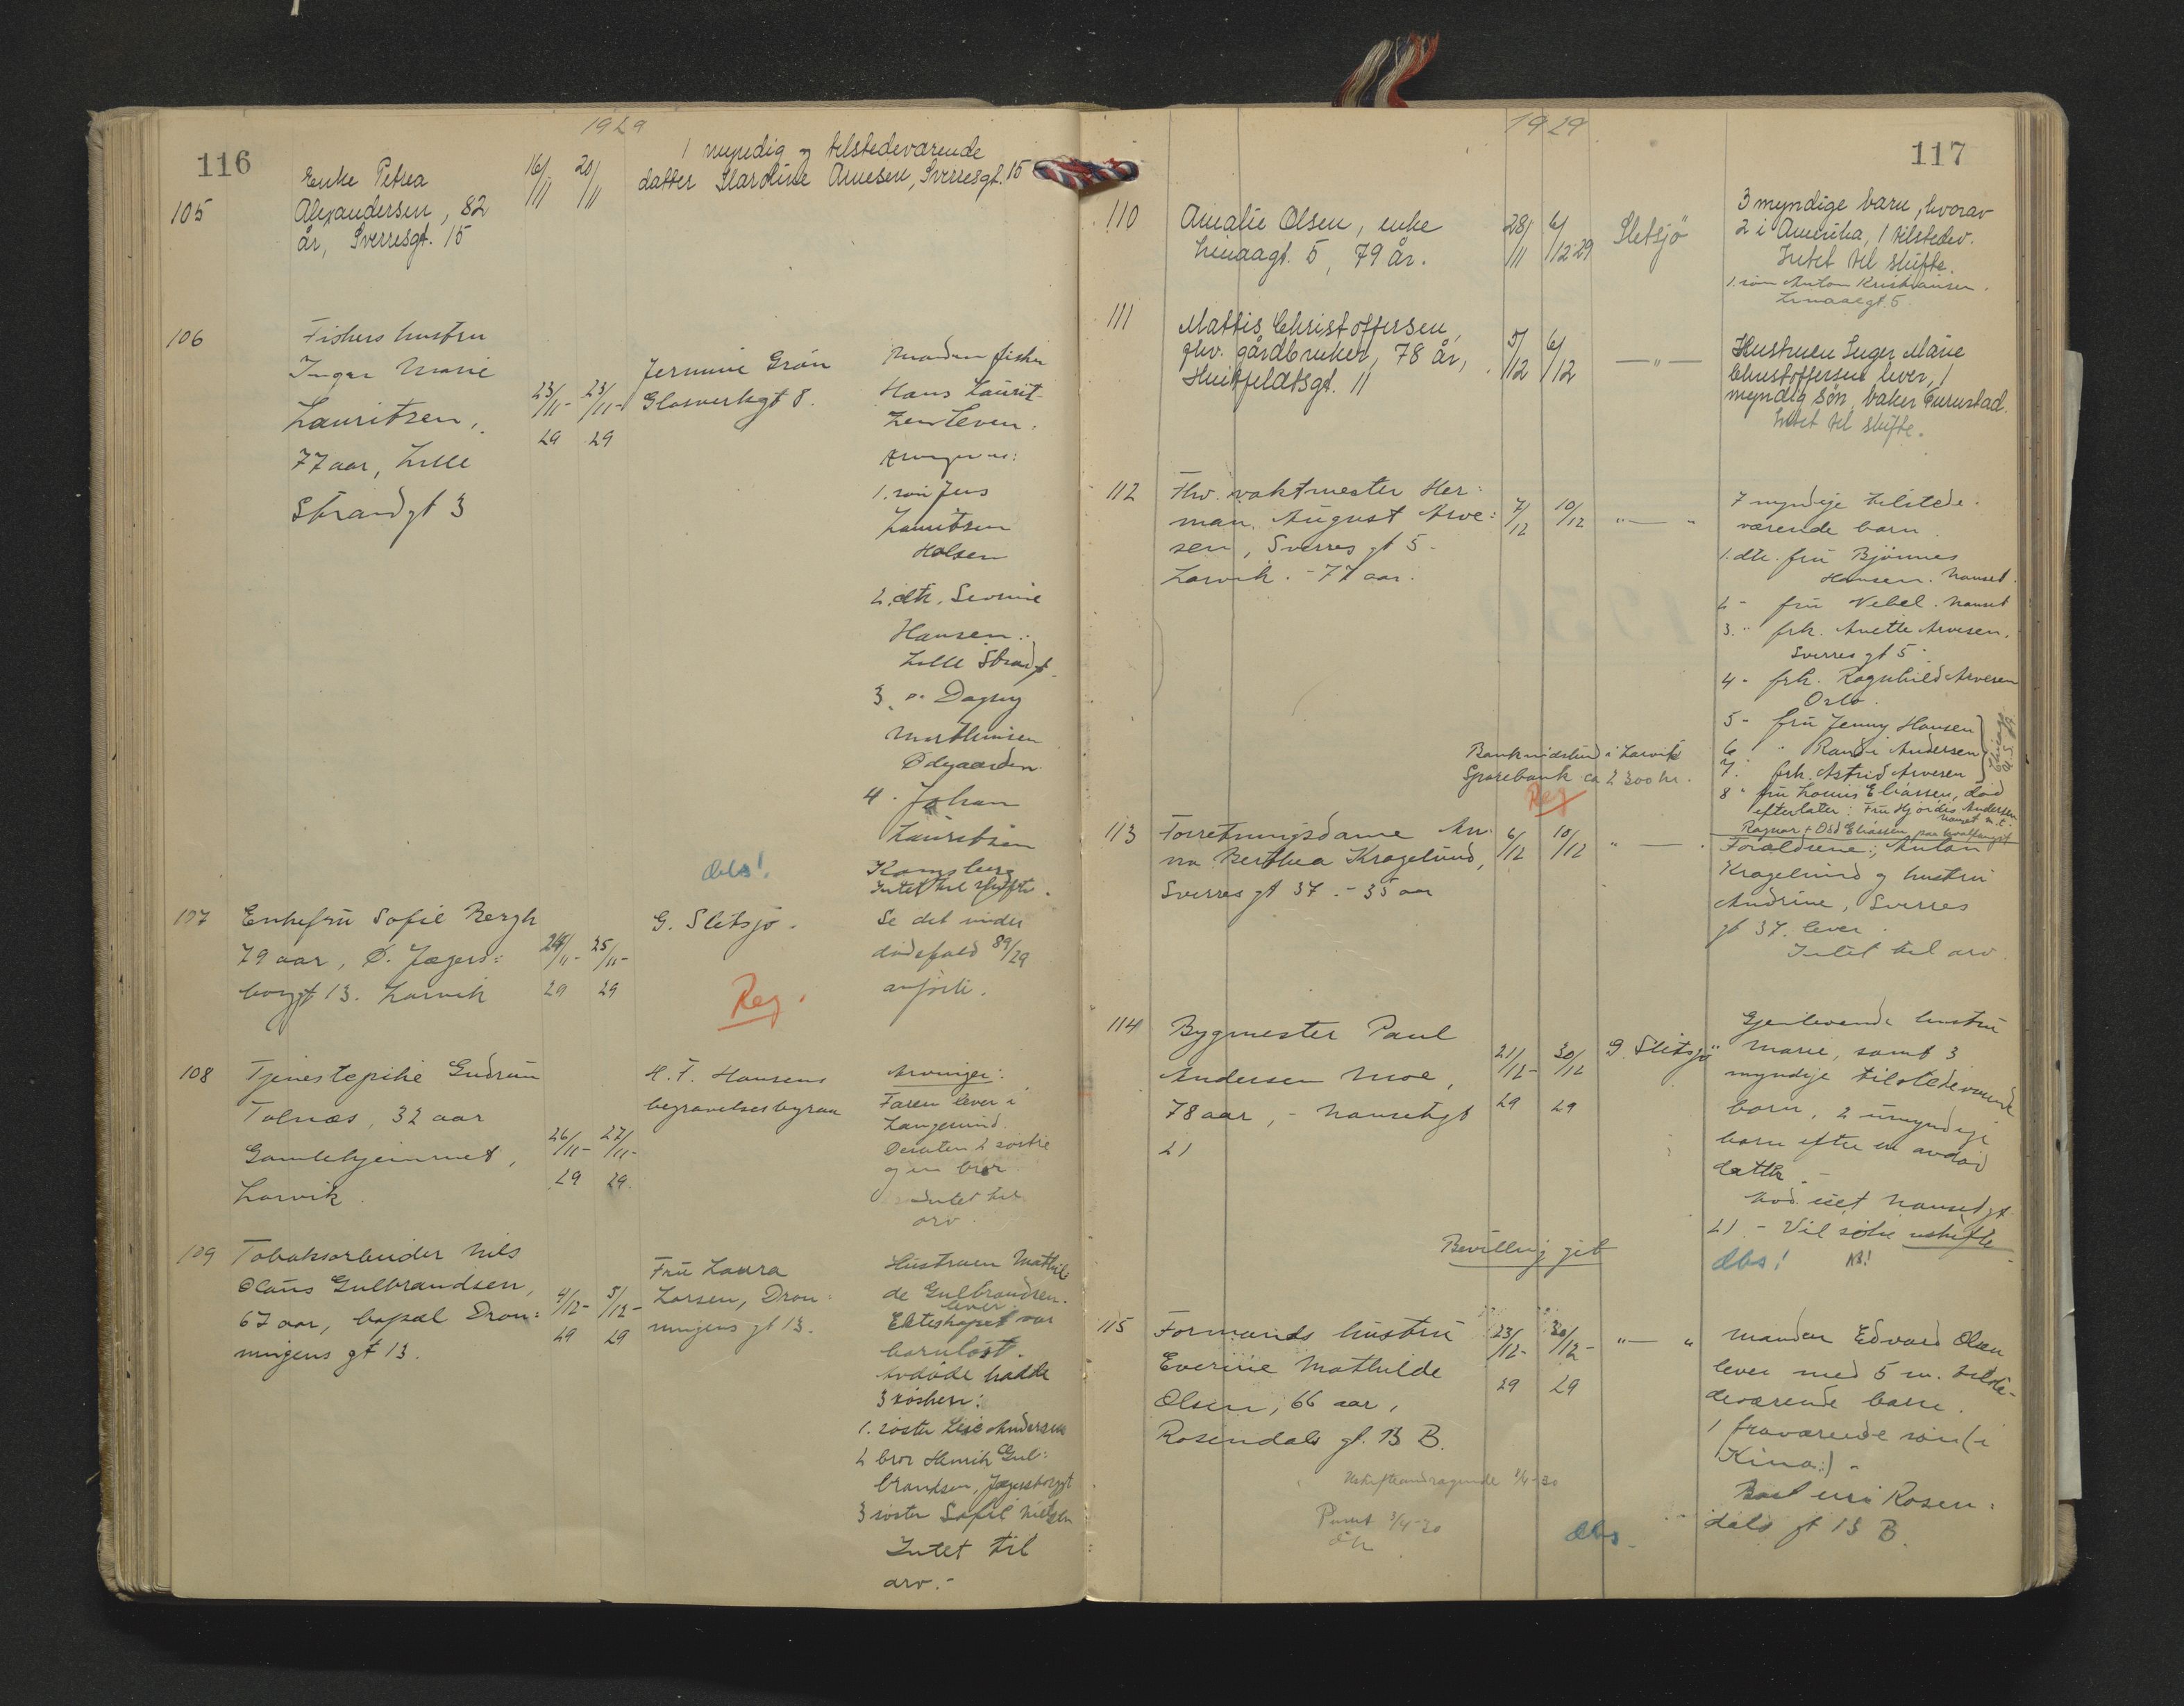 1929
116
105
Enke Petrea
Alexandersen, 82
år, Sverresgt. 15
16/11 20/11
1 myndig og tilstedeværende
datter Karoline Arnesen, Sverresgt. 15
106
Fiskers hustru
Inger Marie
Lauritsen,
77 aar, Lille
Strandgt 3
23/11- 23/11-
29 29
Jermine Grön
Glasverkgt 8.
Manden fisker
Hans Laurit-
zen lever.
Arvingerne:
1. søn Jens
Lauritsen
Holsen
2. dtr. Severine
Hansen.
Lille Strandgt.
3. " Dagny
Marthinsen
Ødegaarden.
4. Johan
Lauritsen
Kongsberg
Intet til skifte.
Obs!
107
Enkefru Sofie Bergh
79 aar, Ø. Jægers=
borggt 13. Larvik
24/11- 25/11-
29 29
G. Sletsjø.
Reg.
Se det under
dødsfald 89/29
anførte.
108
Tjenestepike Gudrun
Tolnæs, 32 aar
Gamlehjemmet,
Larvik.
26/11- 27/11-
29 29.
H. F. Hansens
begravelsesbyraa
Arvinger:
Faren lever i
Langesund.
Desuten 2 søstre
og en bror.
Intet til
arv.
109
Tobaksarbeider Nils
Olaus Gulbrandsen,
67 aar, bopæl Dron=
ningens gt 13.
4/12- 5/12-
29 29
Fru Laura
Larsen, Dron=
ningens gt 13.
Hustruen Mathil=
de Gulbrandsen.
lever.
Ekteskapet var
barnløst.
Avdøde hadde
3 søsken:
1. søster Lise Andersen
2 bror Henrik Gul=
brandsen, Jægersborggt
3 søster Sofie Nielsen
Intet til
arv.-
1929
117
110
Amalie Olsen, enke
Linaagt. 5, 79 år.
28/11 6/12 29
Sletsjö
3 myndige barn, hvorav
2 i Amerika, 1 tilstedev.
Intet til skifte.
1. søn Anton Kristiansen.
Linaaegt. 5.
111
Mattis Christoffersen,
fhv. gårdbruker, 78 år,
Huitfeldtsgt. 11
5/12 6/12
— " —
Hustruen Inger Marie
Christoffersen lever, 1
myndig søn, baker Furustad.
Intet til skifte.
112
Fhv. vaktmester Her=
man August Arve=
sen, Sverres gt 5.
Larvik. - 77 aar.
7/12 10/12
" — "
7 myndige tilstede=
værende barn.
1. dtr. fru Bjønnes
Hansen. Nanset.
2 - fru Nebel. Nanset
3. " frk. Anette Arvesen.
Sverres gt 5.
4 - frk. Ragnhild Arvesen
Oslo.
5 - fru Jenny Hansen
6 " Randi Andersen
7. frk. Astrid Arvesen
Chicago
U.S.A.
8 " fru Louis Eliassen, død
efterlater: Fru Hjørdis Andersen
Nanset m.t.
Ragnar & Odd Eliassen paa hvalfangst
Bankindskud i Larvik
Sparebank ca 2300 kr.
Reg
113
Forretningsdame An-
na Berthea Kragelund,
Sverres gt 37. - 35 aar
6/12 10/12
" — "
Forældrene: Anton
Kragelund og hustru
Andrine, Sverres
gt 37. lever.
Intet til arv.
114
Bygmester Paul
Andersen Moe,
78 aar, - Nansetgt
21
21/12- 30/12
29 29
G. Sletsjö
Gjenlevende hustru
Marie, samt 3
myndige tilstedeværende
barn, 2 umyndige
barn efter en avdød
datter.-
21 - Vil søke uskifte
Obs! NB!
Bevilling git
115
Formands hustru
Everine Mathilde
Olsen, 66 aar,
Rosendals gt. 13 B.
23/12- 30/12-
29 29
" — "
Manden Edvard Olsen
lever med 5 m. tilste-
deværende barn.
1 fraværende søn (i
Kina).-
Rosen=
dals gt 13 B.
Uskifteandragende 1/4-30
3/4-30
Obs.